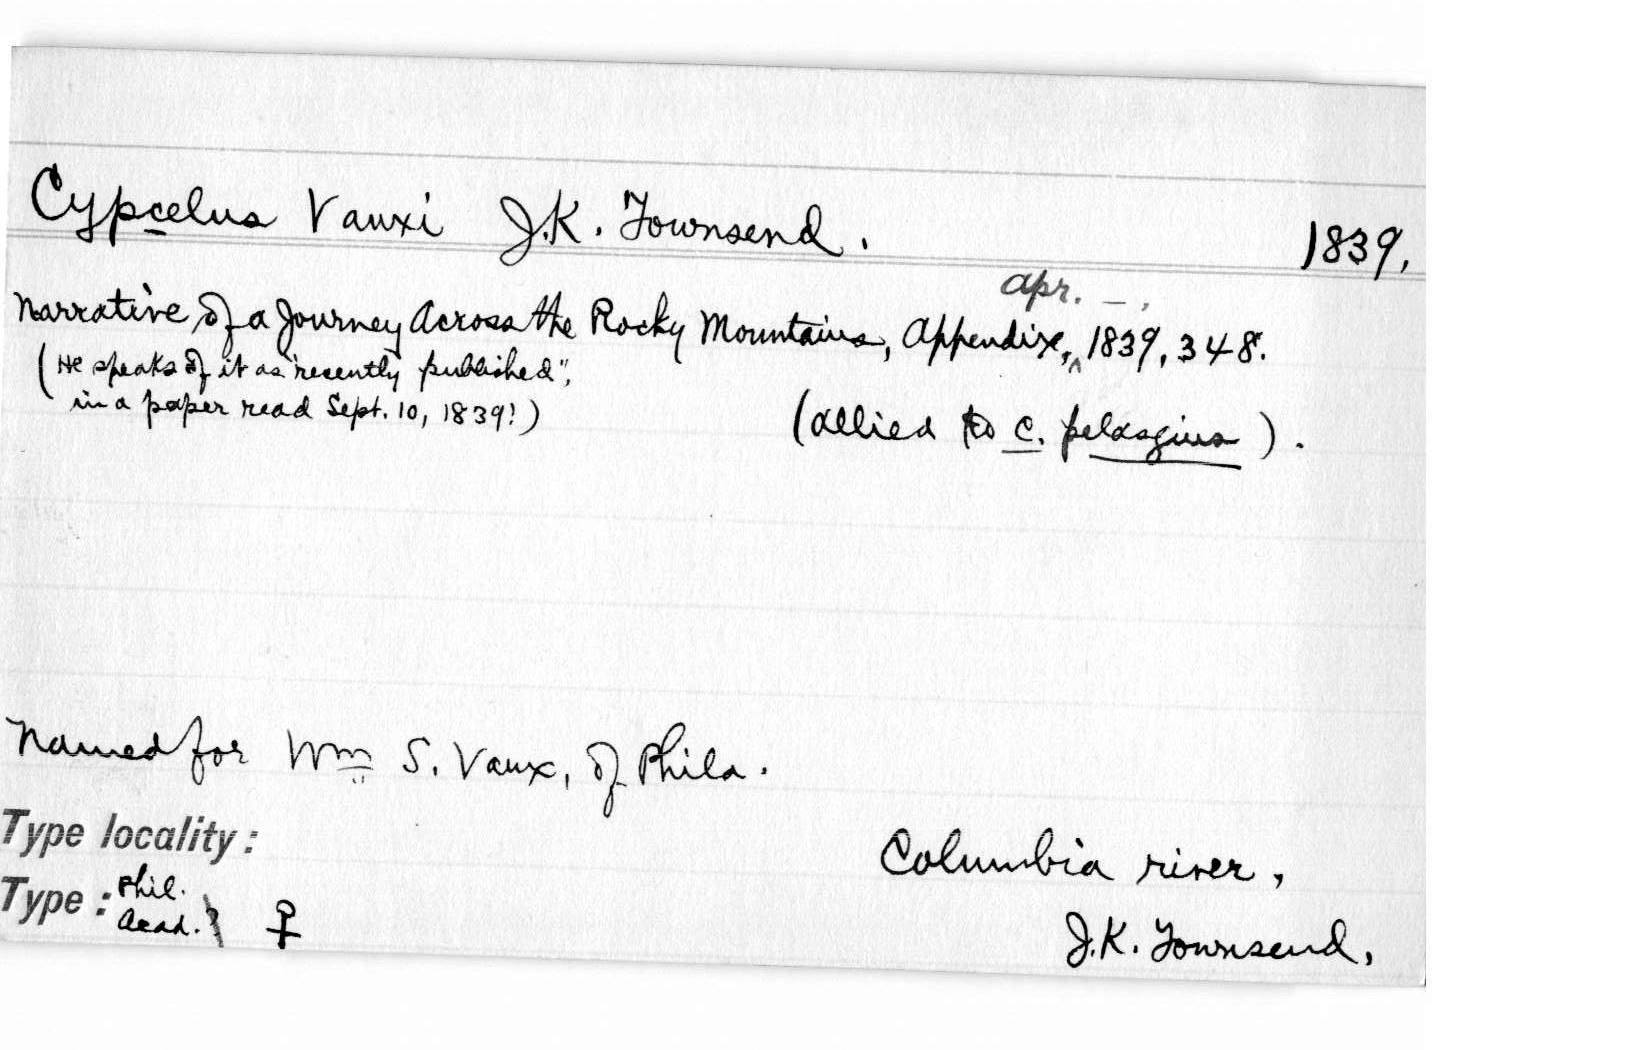 Cypcelus Vauxi J.K. Townsend. 1839.
apr. — .
Narrative of a Journey Across the Rocky Mountains, Appendix, ^ 1839, 348.
(He speaks of it as "recently published",
in a paper read Sept. 10, 1839!)
(allied to C. pelasgius).
Named for Wm S. Vaux, of Phila.
Type locality:
Columbia river,
Type: Phil.
Acad.? ♀
J.K. Townsend,